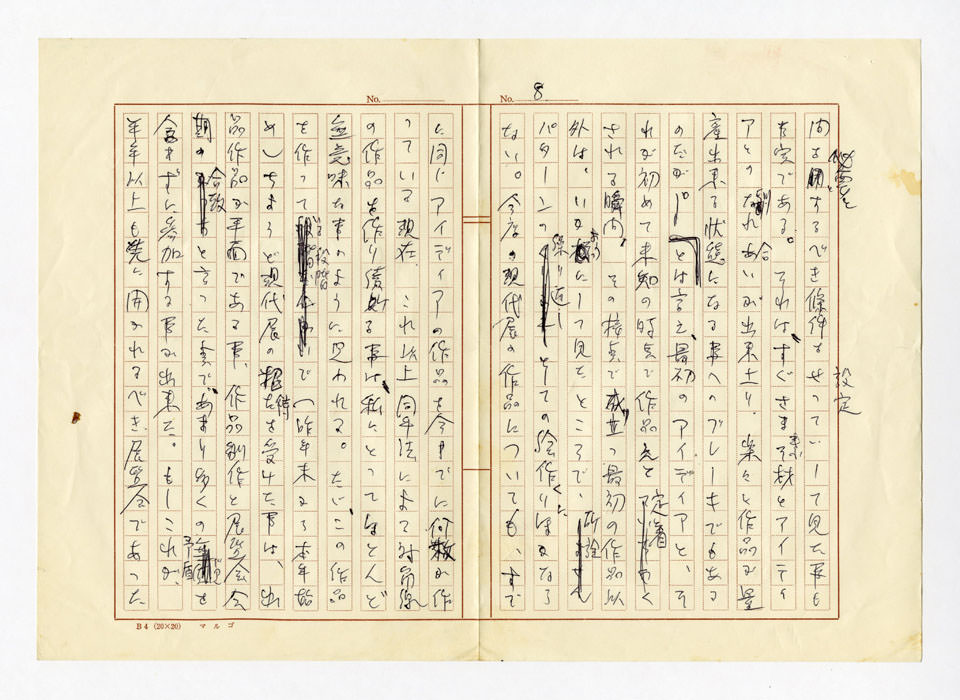 No. 8
間を置するべき條件をせっていして見た事も
必要を
設定
た定である。それは、すぐさま素材とアイディ
アとの馴れ合いが出来上り、楽々と作品が量
産出来る状態になる事へのブレーキでもある
のだが。とは言え、最初のアイディアと、そ
れが初めて未知の時点で作品えと定着
される瞬間、その接点で成立つ最初の作品以
外は、いかようにして見たところで、所詮
パターンの繰り返しとしての絵作りにほかなら
ない。今度の現代展の作品についても、すで
No.
に同じアイディアの作品を今日までに何枚か作
っている現在、これ以上同手法によって対
の作品を作り続ける事は、私にとってほとんど
無意味な事のように思われる。たゞ、この作品
を作って る段階で一昨年末から本年始
めしちょうど現代展の招待を受けた事は、出
品作品が平面である事、作品制作と展覧会会
期の合致と言った事で、あまり多くの矛盾を
含まずに参加する事が出来た。もしこれが、
半年以上も先に開かれるべき展覧会であった
B4 (20×20) マルゴ